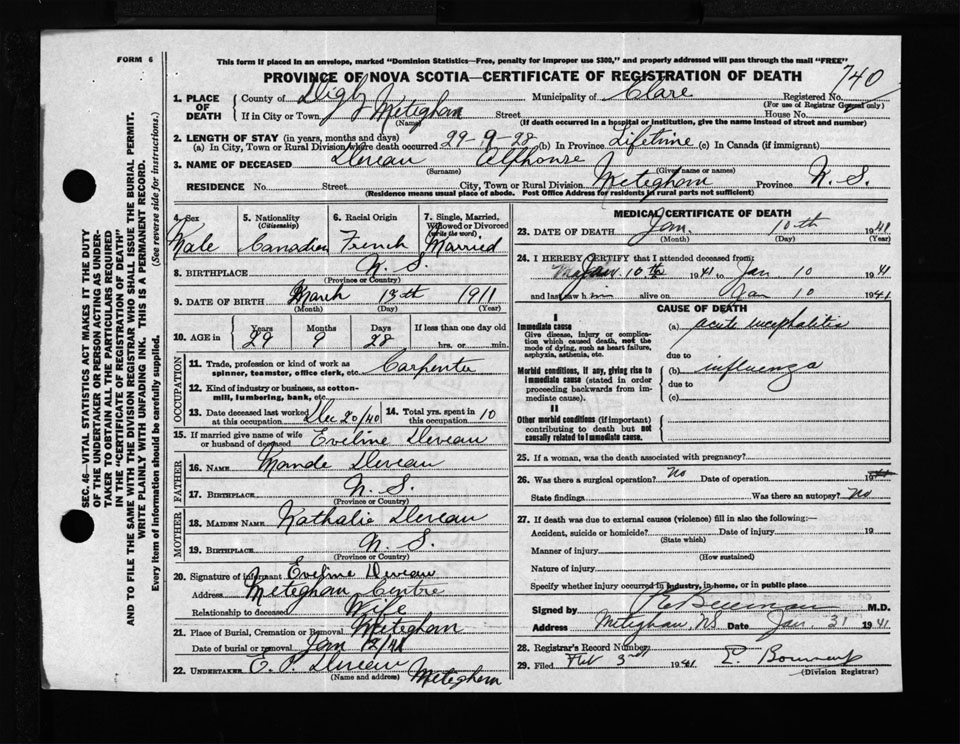 FORM 6
This form if placed in an envelope, marked "Dominion Statistics—Free, penalty for improper use $300," and properly addressed will pass through the mail "FREE"
PROVINCE OF NOVA SCOTIA—CERTIFICATE OF REGISTRATION OF DEATH
740
1. PLACE OF DEATH County of Digby Municipality of Clare Registered No.
(For use of Registrar General only)
If in City or Town Meteghan Street House No.
(Name) (If death occurred in a hospital or institution, give the name instead of street and number)
2. LENGTH OF STAY (in years, months and days)
(a) In City, Town or Rural Division where death occurred 29-9-28 (b) In Province Lifetime (c) In Canada (if immigrant)
3. NAME OF DECEASED Deveau Alphonse
(Surname) (Given name or names)
RESIDENCE No. Street City, Town or Rural Division Meteghan Province N. S.
(Residence means usual place of abode. Post Office Address for residents in rural parts not sufficient)
4. Sex 5. Nationality 6. Racial Origin 7. Single, Married, Widowed or Divorced
(Citizenship) (write the word)
Male Canadian French Married
8. BIRTHPLACE N. S.
(Province or Country)
9. DATE OF BIRTH March 13th 1911
(Month) (Day) (Year)
10. AGE in Years Months Days If less than one day old
29 9 28 hrs. or min.
OCCUPATION
11. Trade, profession or kind of work as spinner, teamster, office clerk, etc. Carpenter
12. Kind of industry or business, as cotton-mill, lumbering, bank, etc.
13. Date deceased last worked at this occupation Dec 20/40 14. Total yrs. spent in 10
15. If married give name of wife or husband of deceased Eveline Deveau
FATHER
16. NAME Mande Deveau
17. BIRTHPLACE N. S.
(Province or Country)
MOTHER
18. MAIDEN NAME Nathalie Deveau
19. BIRTHPLACE N. S.
(Province or Country)
20. Signature of informant Eveline Deveau
Address Meteghan Centre
Relationship to deceased Wife
21. Place of Burial, Cremation or Removal Meteghan
Date of burial or removal Jan 12/41
22. UNDERTAKER E. P. Deveau Meteghan
(Name and address)
MEDICAL CERTIFICATE OF DEATH
23. DATE OF DEATH Jan. 10th 1941
(Month) (Day) (Year)
24. I HEREBY CERTIFY that I attended deceased from:
Jan. 10th 1941 to Jan 10 1941
and last saw him alive on Jan 10 1941
CAUSE OF DEATH
I
Immediate cause (a) acute encephalitis
Give disease, injury or complication which caused death, not the mode of dying, such as heart failure, asphyxia, asthenia, etc.
due to
Morbid conditions, if any, giving rise to immediate cause (stated in order proceeding backwards from immediate cause). (b) influenza
due to
(c)
II
Other morbid conditions (if important) contributing to death but not causally related to immediate cause.
25. If a woman, was the death associated with pregnancy?
26. Was there a surgical operation? No Date of operation 19
State findings Was there an autopsy? No
27. If death was due to external causes (violence) fill in also the following:—
Accident, suicide or homicide? Date of injury 19
(State which)
Manner of injury
(How sustained)
Nature of injury
Specify whether injury occurred in industry, in home, or in public place
Signed by M.D.
Address Meteghan, NS Date Jan. 31 1941
28. Registrar's Record Number
29. Filed Feb 3rd 1941
(Division Registrar)
SEC. 46—VITAL STATISTICS ACT MAKES IT THE DUTY
OF THE UNDERTAKER OR PERSON ACTING AS UNDER-
TAKER TO OBTAIN ALL THE PARTICULARS REQUIRED
IN THE "CERTIFICATE OF REGISTRATION OF DEATH"
AND TO FILE THE SAME WITH THE DIVISION REGISTRAR WHO SHALL ISSUE THE BURIAL PERMIT.
WRITE PLAINLY WITH UNFADING INK. THIS IS A PERMANENT RECORD.
Every item of information should be carefully supplied. (See reverse side for instructions.)